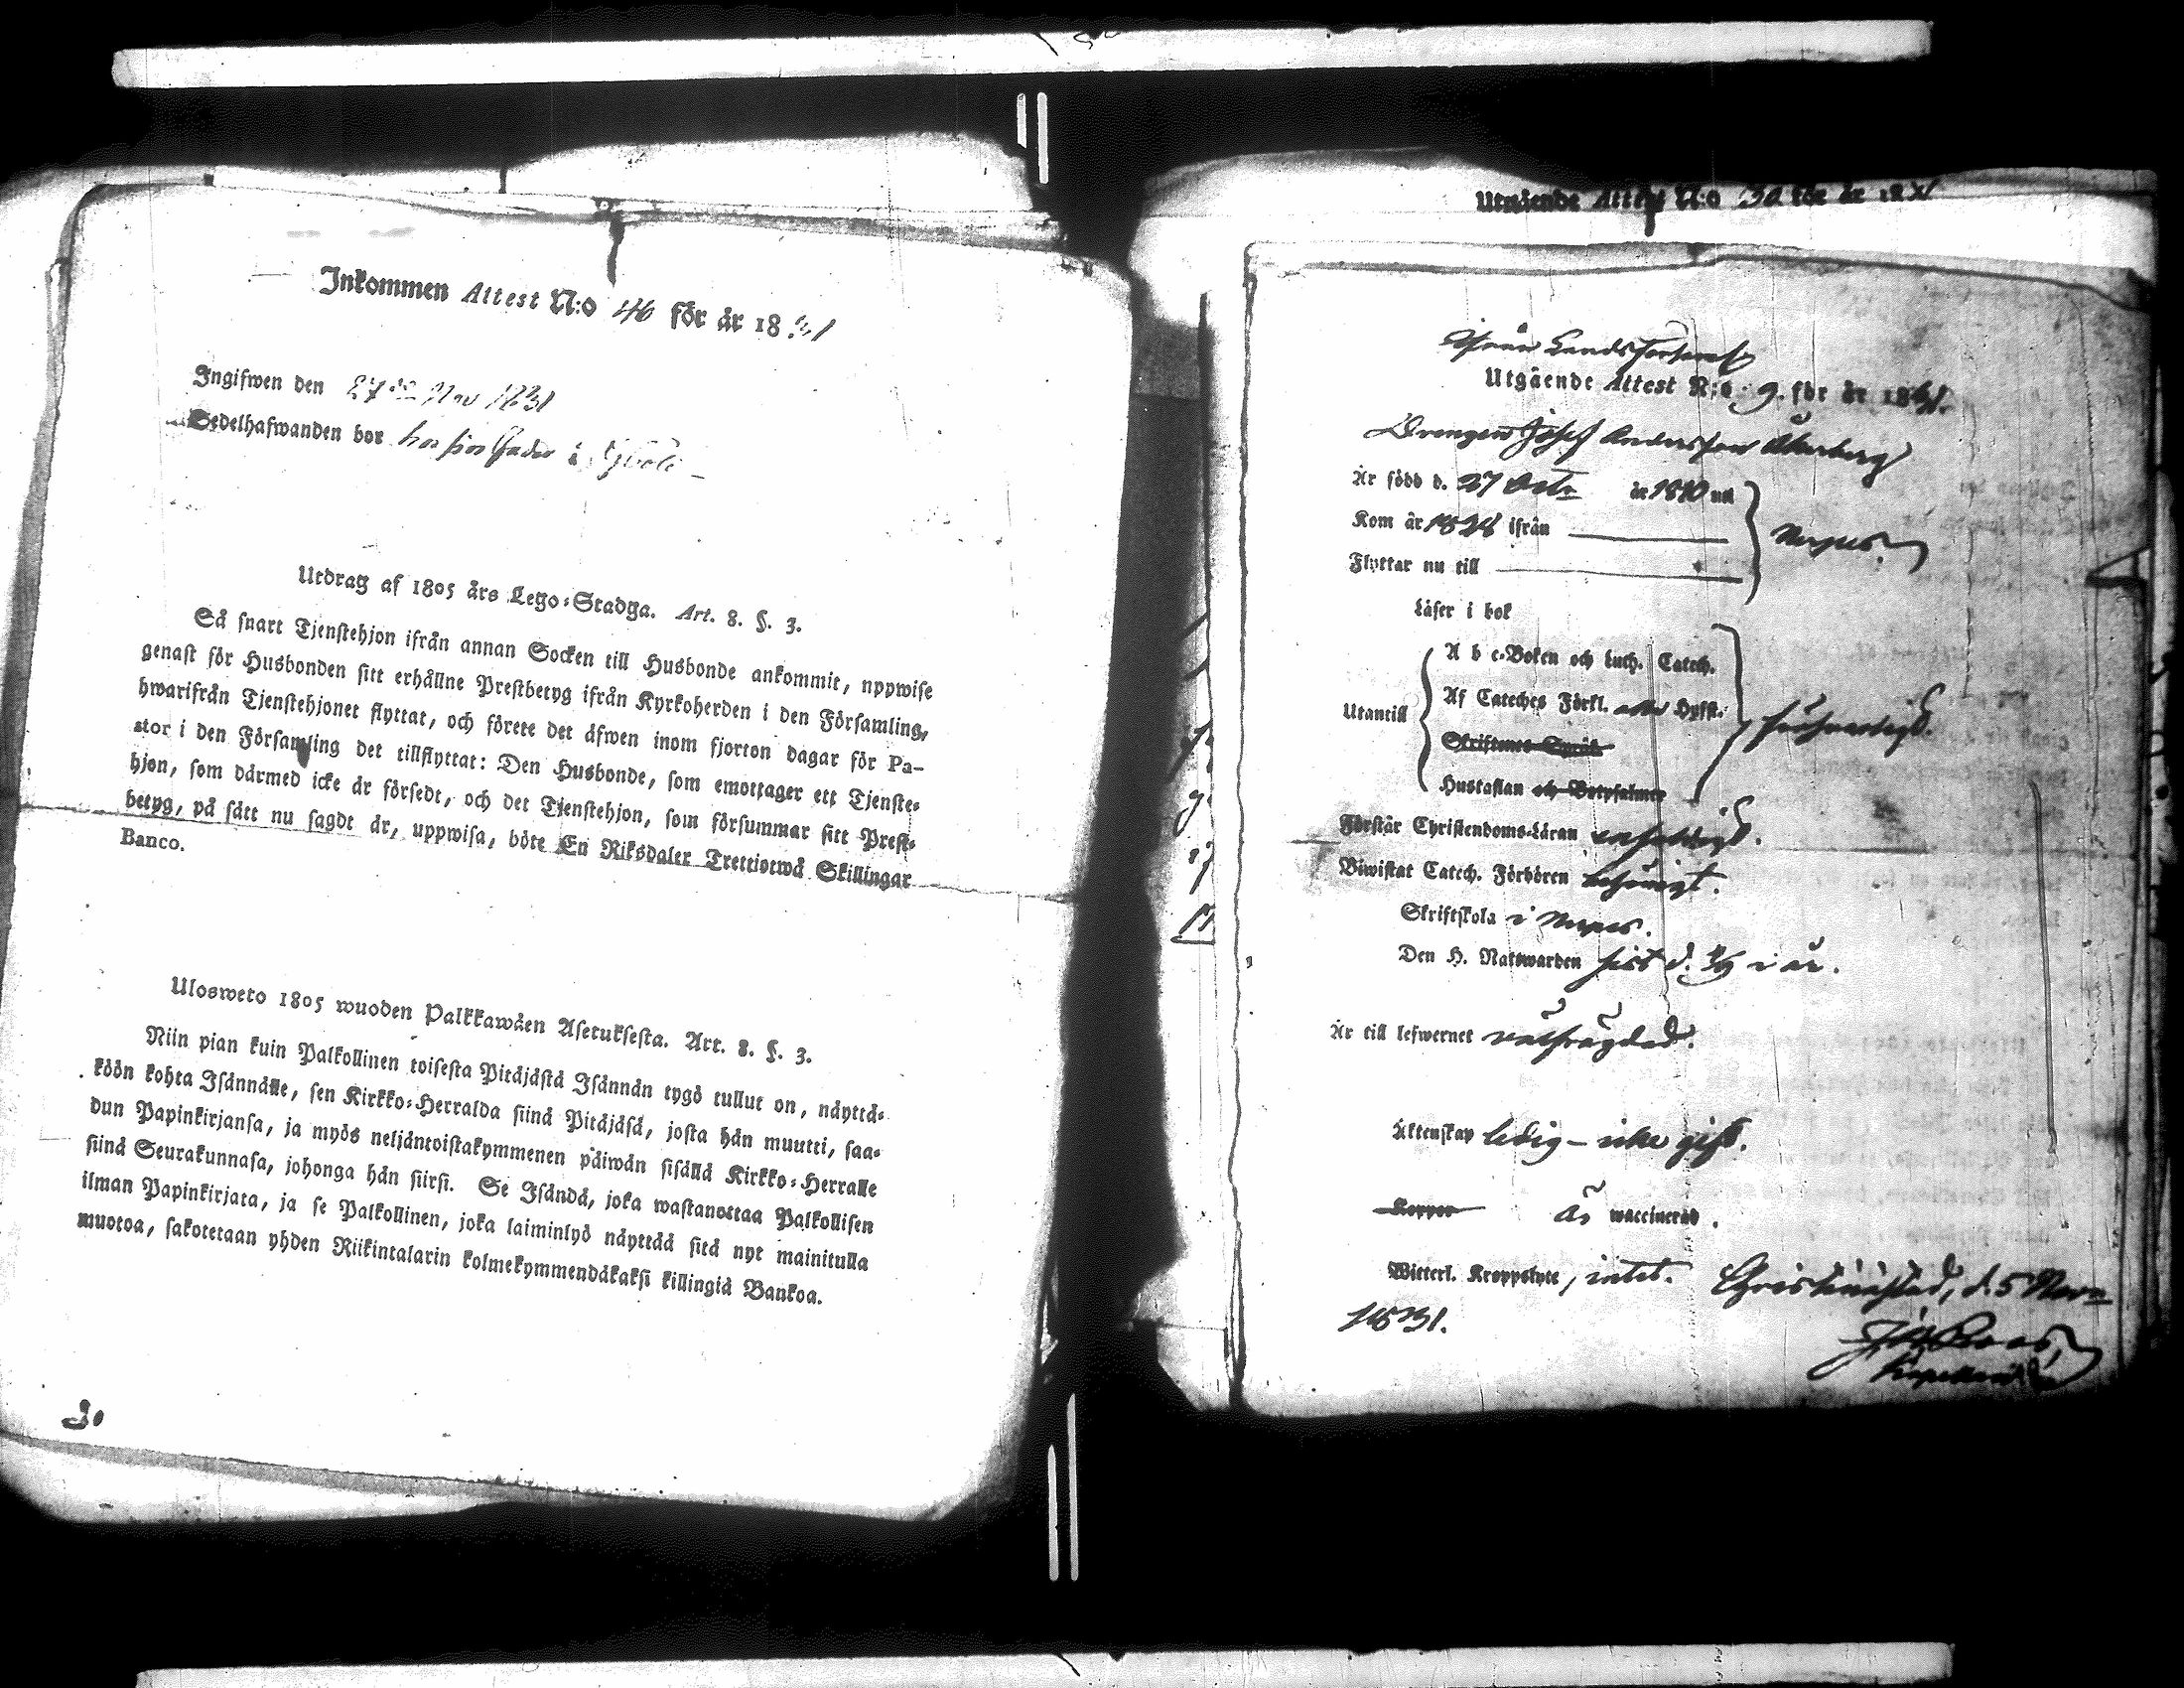 Inkommen Attest N:o 46 för år 1831
Ingifwen den 27de Nov 1831
Sedelhafwanden bor hos sin fader i
Utdrag af 1805 års Lego-Stadga. Art. 8. §. 3.
Så snart Tjenstehjon ifrån annan Socken till Husbonde ankommit, uppwise
genast för Husbonden sitt erhållne Prestbetyg ifrån Kyrkoherden i den Församling,
hwarifrån Tjenstehjonet flyttat, och förete det äfwen inom fjorton dagar för Pa-
stor i den Församling det tillflyttat: Den Husbonde, som emottager ett Tjenste-
hjon, som därmed icke är försedt, och det Tjenstehjon, som försummar sitt Prest-
betyg, på sätt nu sagdt är, uppwisa, böte En Riksdaler Trettiotwå Skillingar
Banco.
Ulosweto 1805 wuoden Palkkawäen Asetuksesta. Art. 8. §. 3.
Niin pian kuin Palkollinen toisesta Pitäjästä Isännän tygö tullut on, näyttä-
köön kohta Isännälle, sen Kirkko-Herralda siinä Pitäjäsä, josta hän muutti, saa-
dun Papinkirjansa, ja myös neljäntoistakymmenen päiwän sisällä Kirkko-Herralle
siinä Seurakunnasa, johonga hän siirsi. Se Isändä, joka wastanottaa Palkollisen
ilman Papinkirjata, ja se Palkollinen, joka laiminlyö näyttää sitä nyt mainitulla
muotoa, sakotetaan yhden Riikintalarin kolmekymmendäkaksi killingiä Bankoa.
30
Utgående Attest N:o 30 för år 18
ifrån Landsförsaml
Utgående Attest N:o 9. för år 1831.
Drengen Josef Andersson Åkerberg
Är född d. 27 Octr år 1810 uti
Kom år 1828 ifrån
Nerpes.
Flyttar nu till
Läser i bok
A b c-Boken och Luth. Catech.
Af Cateches Förkl. eller Hyfst.
Utantill
försvarligt.
Skriftenes Språk
Hustaflan och Botpsalmer
Förstår Christendoms-Läran enfaldigt.
Biwistat Catech. Förhören behörigt.
Skriftskola i Nerpes.
Den H. Nattwarden sist d. i år.
Är till lefwernet välfrägdad.
Äktenskap ledig - icke gift.
Koppor Är waccinerad.
Witterl. Kroppslyte, intet. Christinæstad, d. 5 Novr
1831.
Kapellan